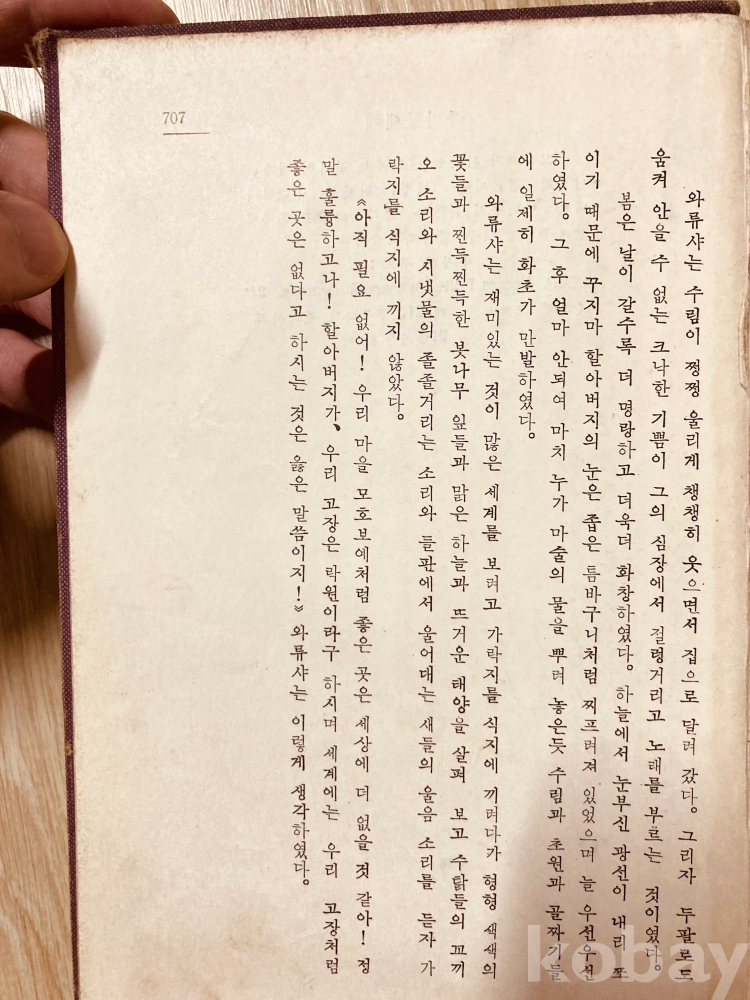 707
와류샤는 수림이 쩡쩡 울리게 챙챙히 웃으면서 집으로 달려 갔다. 그리자 두팔로도
움켜 안을 수 없는 크낙한 기쁨이 그의 심장에서 절렁거리고 노래를 부르는 것이였다.
봄은 날이 갈수록 더 명랑하고 더욱더 화창하였다. 하늘에서 눈부신 광선이 내리 쪼
이기 때문에 꾸지마 할아버지의 눈은 좁은 틈바구니처럼 찌프려져 있었으며 늘 우선우선
하였다. 그 후 얼마 안되여 마치 누가 마술의 물을 뿌려 놓은듯 수림과 초원과 골짜기들
에 일제히 화초가 만발하였다.
와류샤는 재미있는 것이 많은 세계를 보려고 가락지를 식지에 끼려다가 형형 색색의
꽃들과 찐득찐득한 봇나무 잎들과 맑은 하늘과 뜨거운 태양을 살펴 보고 수탉들의 꼬끼
오 소리와 시냇물의 졸졸거리는 소리와 들판에서 울어대는 새들의 울음 소리를 듣자 가
락지를 식지에 끼지 않았다.
《아직 필요 없어! 우리 마을 모호보예처럼 좋은 곳은 세상에 더 없을 것 같아! 정
말 훌륭하고나! 할아버지가、우리 고장은 락원이라구 하시며 세계에는 우리 고장처럼
좋은 곳은 없다고 하시는 것은 옳은 말씀이지!》 와류샤는 이렇게 생각하였다.
kobay